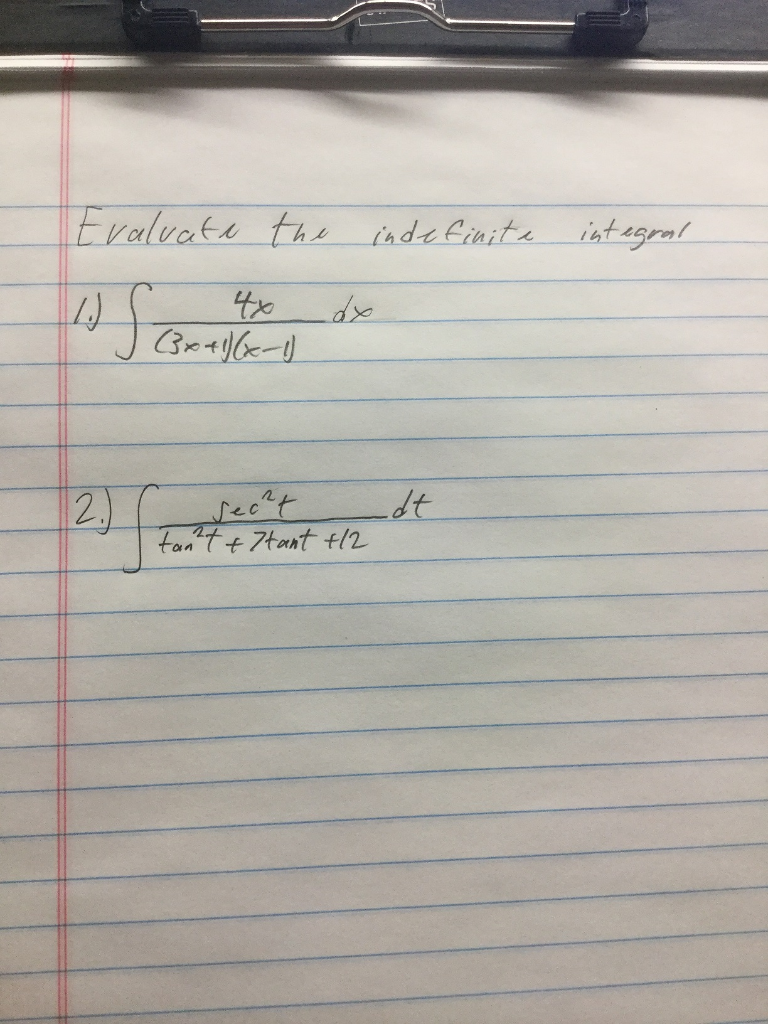 Evaluate the indefinite integral
1.) ∫ 4x / (3x+1)(x-1) dx
2.) ∫ sec²t / tan²t + 7tant +12 dt